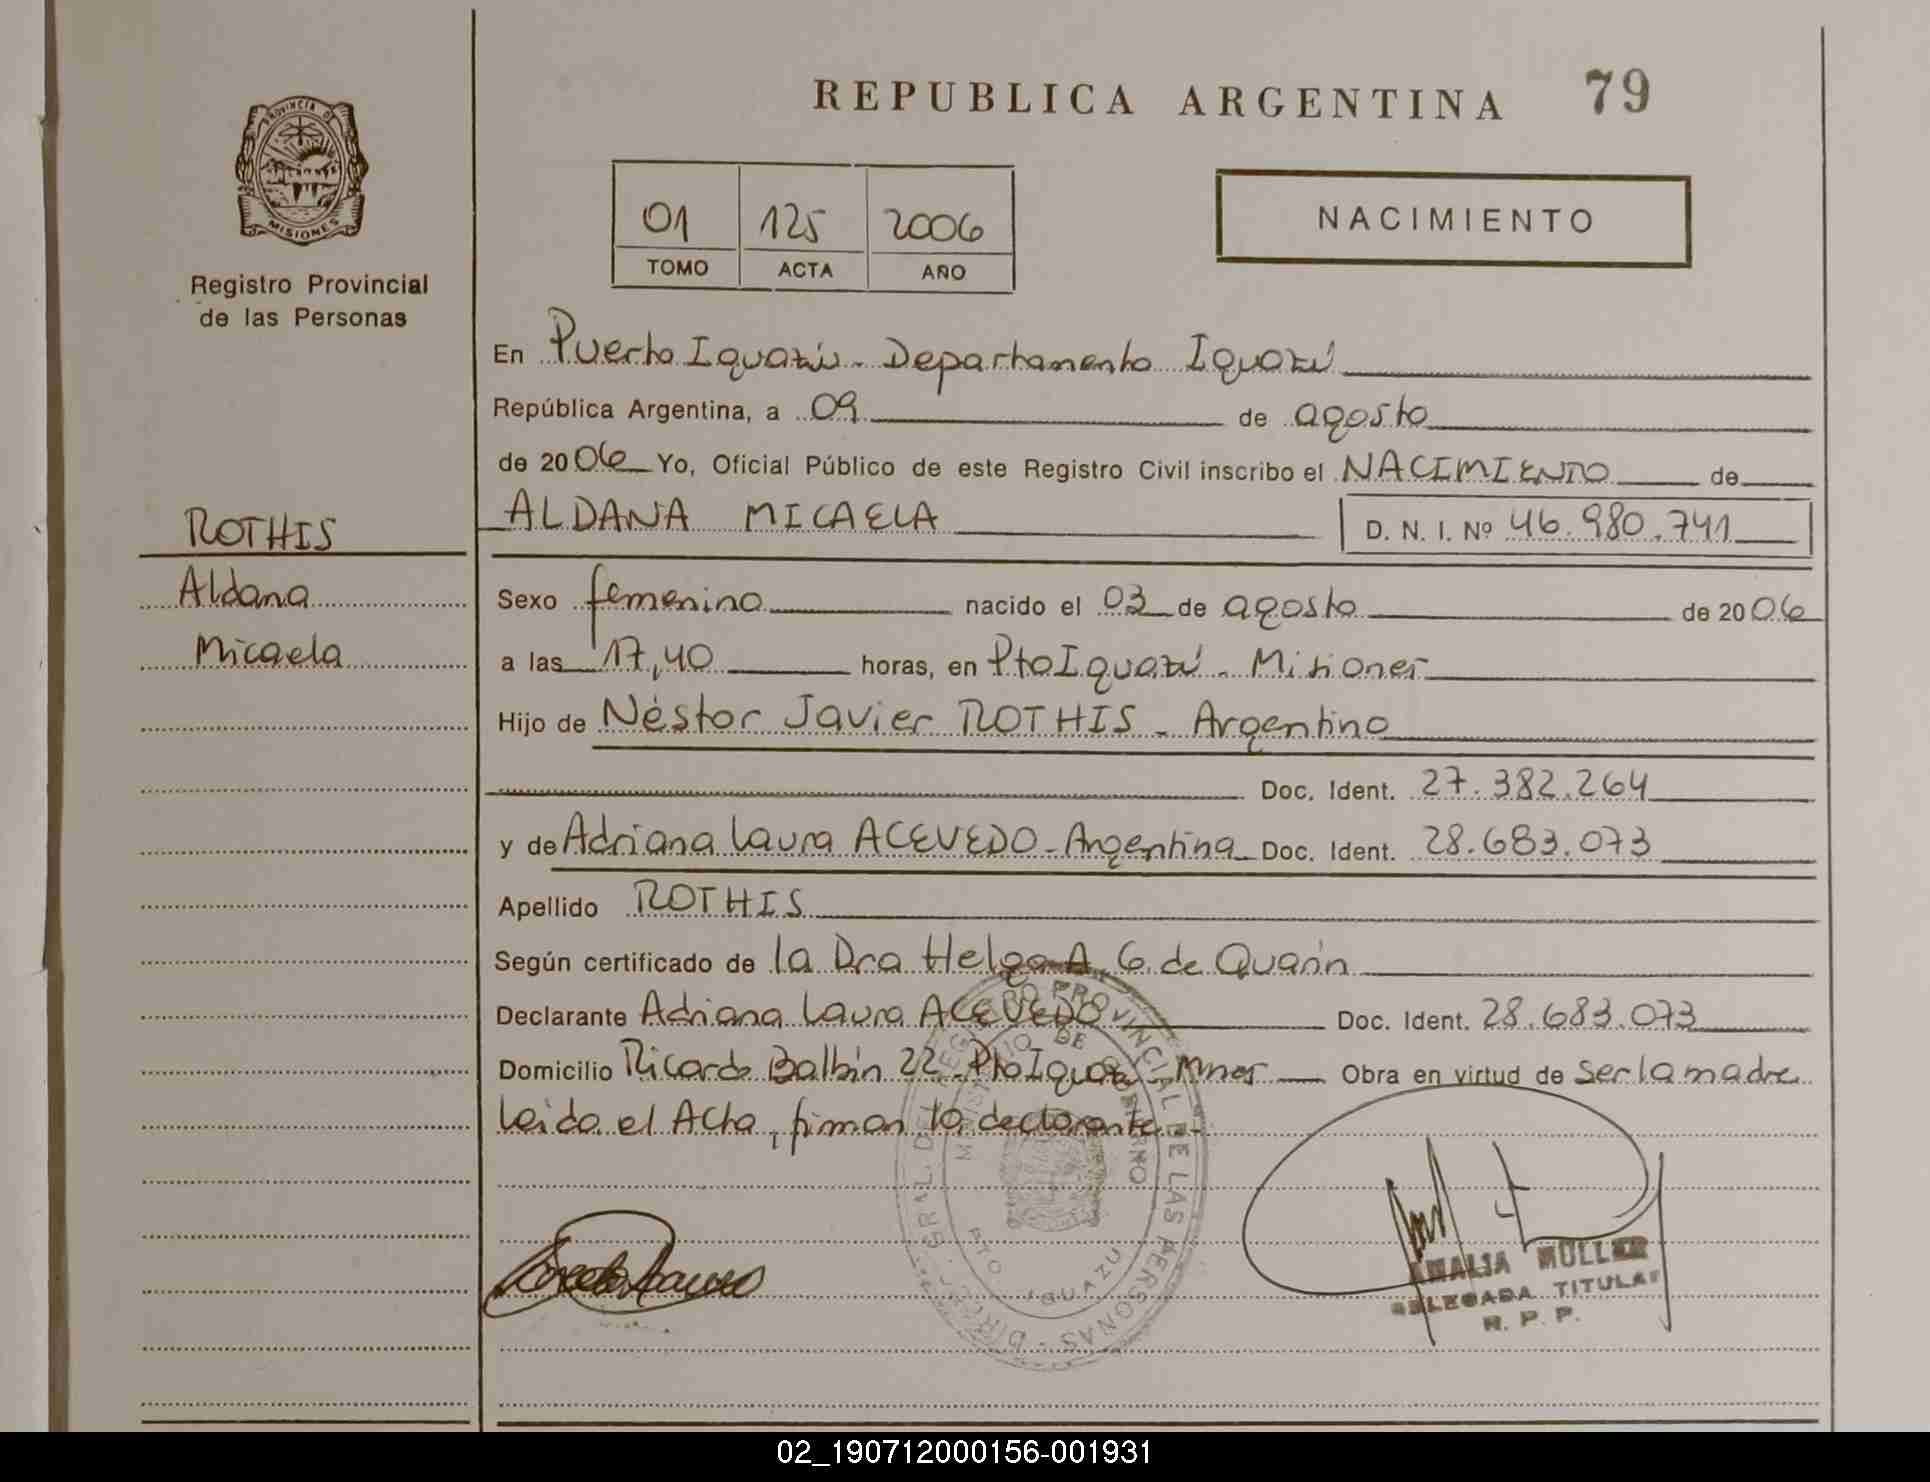 REPUBLICA ARGENTINA 79
PROVINCIA DE
MISIONES
Registro Provincial
de las Personas
01 125 2006
TOMO ACTA AÑO
NACIMIENTO
En Puerto Iguazú - Departamento Iguazú
República Argentina, a 09 de agosto
de 2006 Yo, Oficial Público de este Registro Civil inscribo el NACIMIENTO de
ROTHIS
ALDANA MICAELA D. N. I. Nº 46.980.741
Aldana
Sexo femenino nacido el 03 de agosto de 2006
Micaela
a las 17,40 horas, en Pto Iguazú - Misiones
Hijo de Néstor Javier ROTHIS - Argentino
Doc. Ident. 27.382.264
y de Adriana Laura ACEVEDO - Argentina Doc. Ident. 28.683.073
Apellido ROTHIS
Según certificado de la Dra Helga A. G. de Quarín
Declarante Adriana Laura ACEVEDO Doc. Ident. 28.683.073
Domicilio Ricardo Balbín 22 - Pto Iguazú - Mnes Obra en virtud de ser la madre
Leida el Acta, firman la declarante.-
DIREC. GRAL. DEL REGISTRO PROVINCIAL DE LAS PERSONAS
MINISTERIO DE GOBIERNO
PTO. IGUAZU
AMALIA MULLER
DELEGADA TITULAR
R. P. P.
02_190712000156-001931